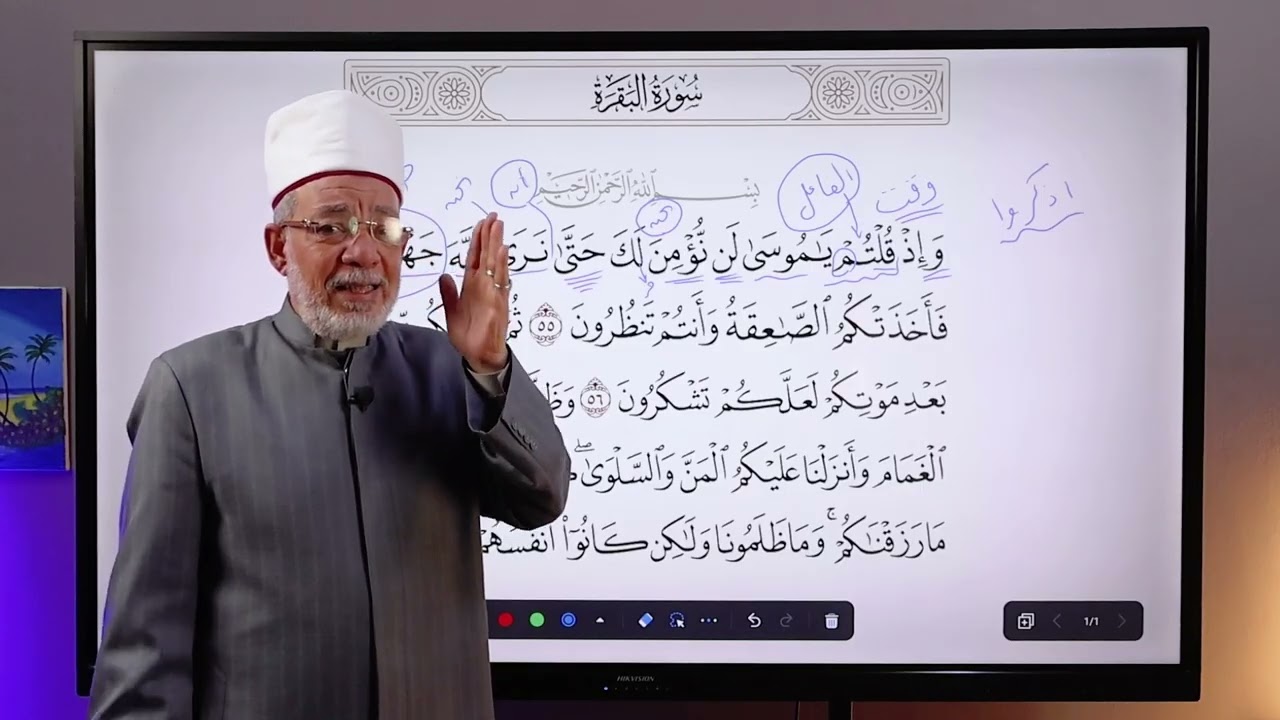 سُورَةُ البَقَرَةِ
بِسْمِ اللَّهِ الرَّحْمَٰنِ الرَّحِيمِ
اذكروا وقت العامل
وَإِذْ قُلْتُمْ يَٰمُوسَىٰ لَن نُّؤْمِنَ لَكَ حَتَّىٰ نَرَى
فَأَخَذَتْكُمُ ٱلصَّٰعِقَةُ وَأَنتُمْ تَنظُرُونَ ٥٥
بَعْدِ مَوْتِكُمْ لَعَلَّكُمْ تَشْكُرُونَ ٥٦
ٱلْغَمَامَ وَأَنزَلْنَا عَلَيْكُمُ ٱلْمَنَّ وَٱلسَّلْوَىٰۖ
مَا رَزَقْنَٰكُمْۚ وَمَا ظَلَمُونَا وَلَٰكِن كَانُوٓا۟ أَنفُسَهُمْ
1/1
HIKVISION